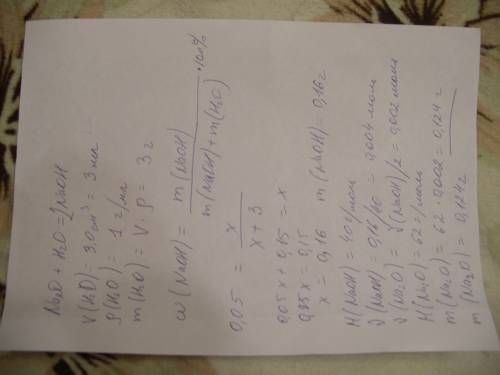 Na₂O + H₂O = 2NaOH
V(H₂O) = 3,0 см³ = 3 мл
ρ(H₂O) = 1 г/мл
m(H₂O) = V · ρ = 3 г
ω(NaOH) = m(NaOH) / m(NaOH) + m(H₂O) · 100%
0,05 = x / x + 3
0,05x + 0,15 = x
0,95x = 0,15
x = 0,16 m(NaOH) = 0,16 г
M(NaOH) = 40 г/моль
ν(NaOH) = 0,16/40 = 0,004 моль
ν(Na₂O) = ν(NaOH)/2 = 0,002 моль
M(Na₂O) = 62 г/моль
m(Na₂O) = 62 · 0,002 = 0,124 г
m(Na₂O) = 0,124 г